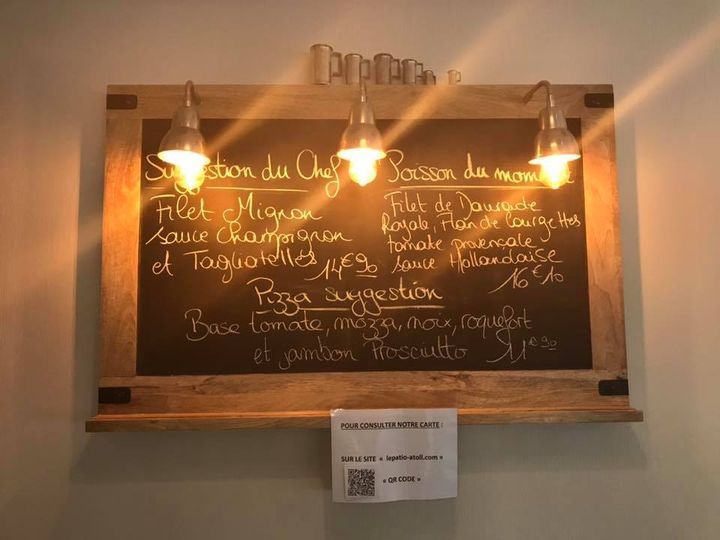 Suggestion du Chef
Filet Mignon
sauce Champignon
et Tagliatelles 14€90
Poisson du moment
Filet de Daurade
Royale, Flan de Courgettes
tomate provençale
sauce Hollandaise
16€10
Pizza suggestion
Base tomate, mozza, noix, roquefort
et jambon Prosciutto 11€90
POUR CONSULTER NOTRE CARTE :
SUR LE SITE « lepatio-atoll.com »
« QR CODE »